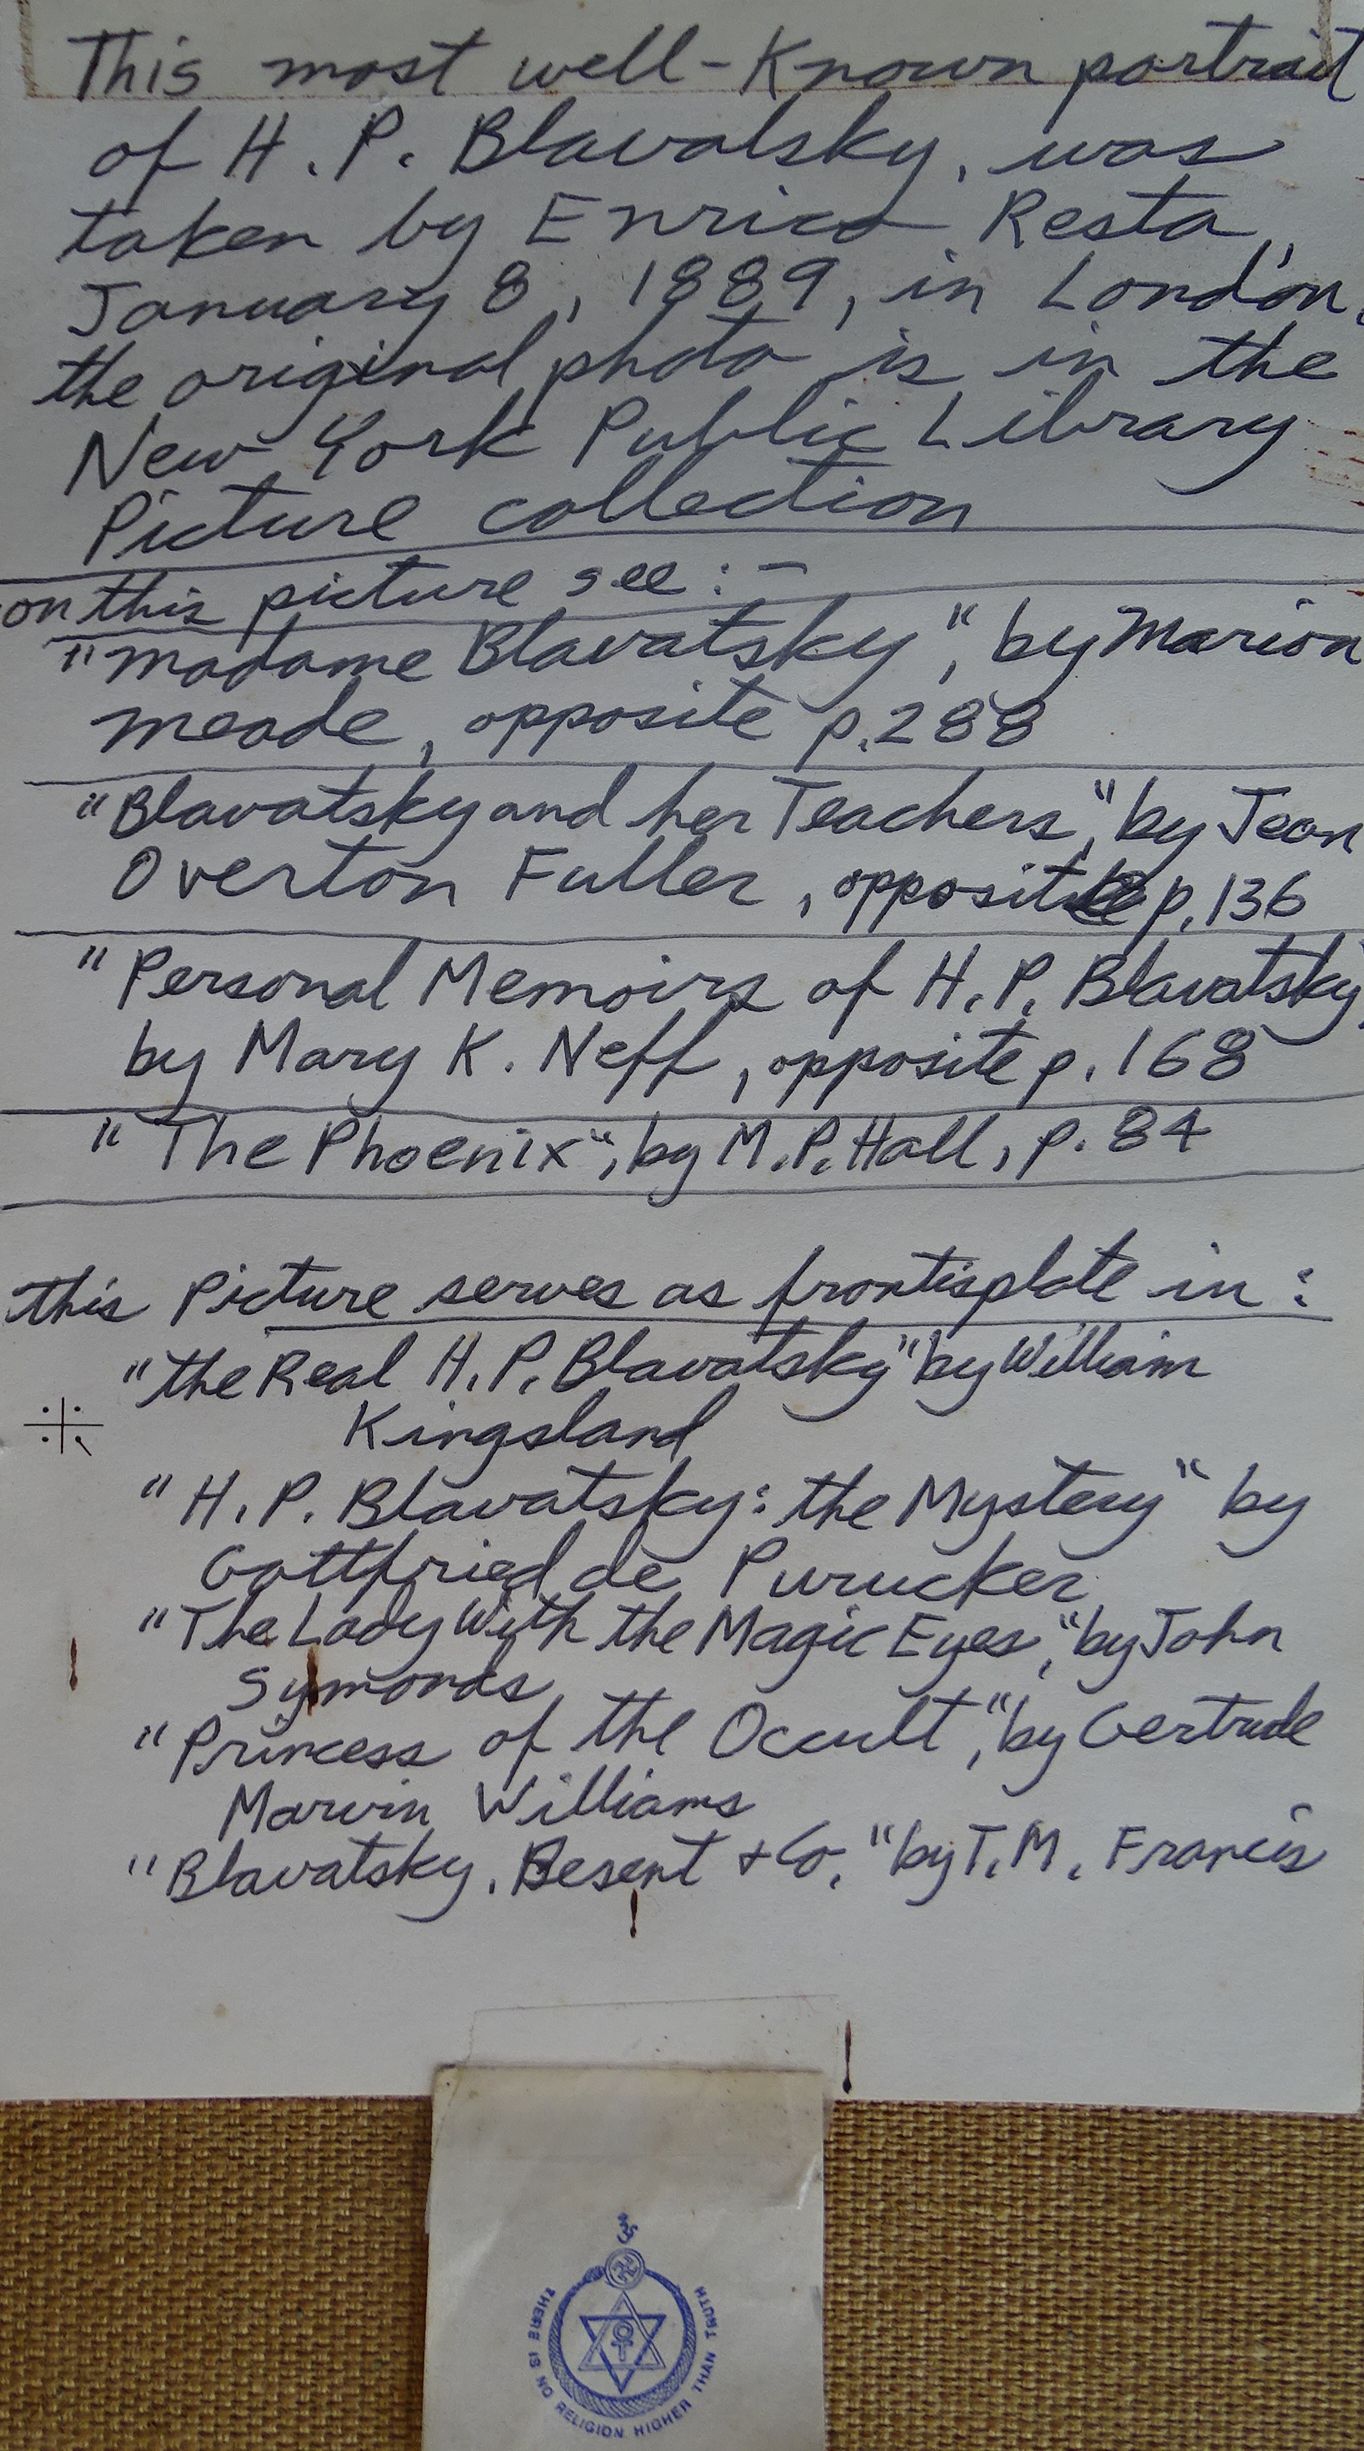 This most well-Known portrait
of H. P. Blavatsky, was
taken by Enrico Resta,
January 8, 1889, in London.
the original photo is in the
New York Public Library
Picture collection
on this picture see:-
"Madame Blavatsky", by Marion
Meade, opposite p.288
"Blavatsky and her Teachers", by Jean
Overton Fuller, opposite p.136
"Personal Memoirs of H.P. Blavatsky
by Mary K. Neff, opposite p.168
"The Phoenix", by M.P. Hall, p.84
this Picture serves as frontisplate in:
"the Real H.P. Blavatsky" by William
Kingsland
"H.P. Blavatsky: the Mystery" by
Gottfried de Purucker
"The Lady With the Magic Eyes," by John
Symonds
"Princess of the Occult," by Gertrude
Marvin Williams
"Blavatsky, Besent + Co," by T.M. Francis
ॐ
THERE IS NO RELIGION HIGHER THAN TRUTH